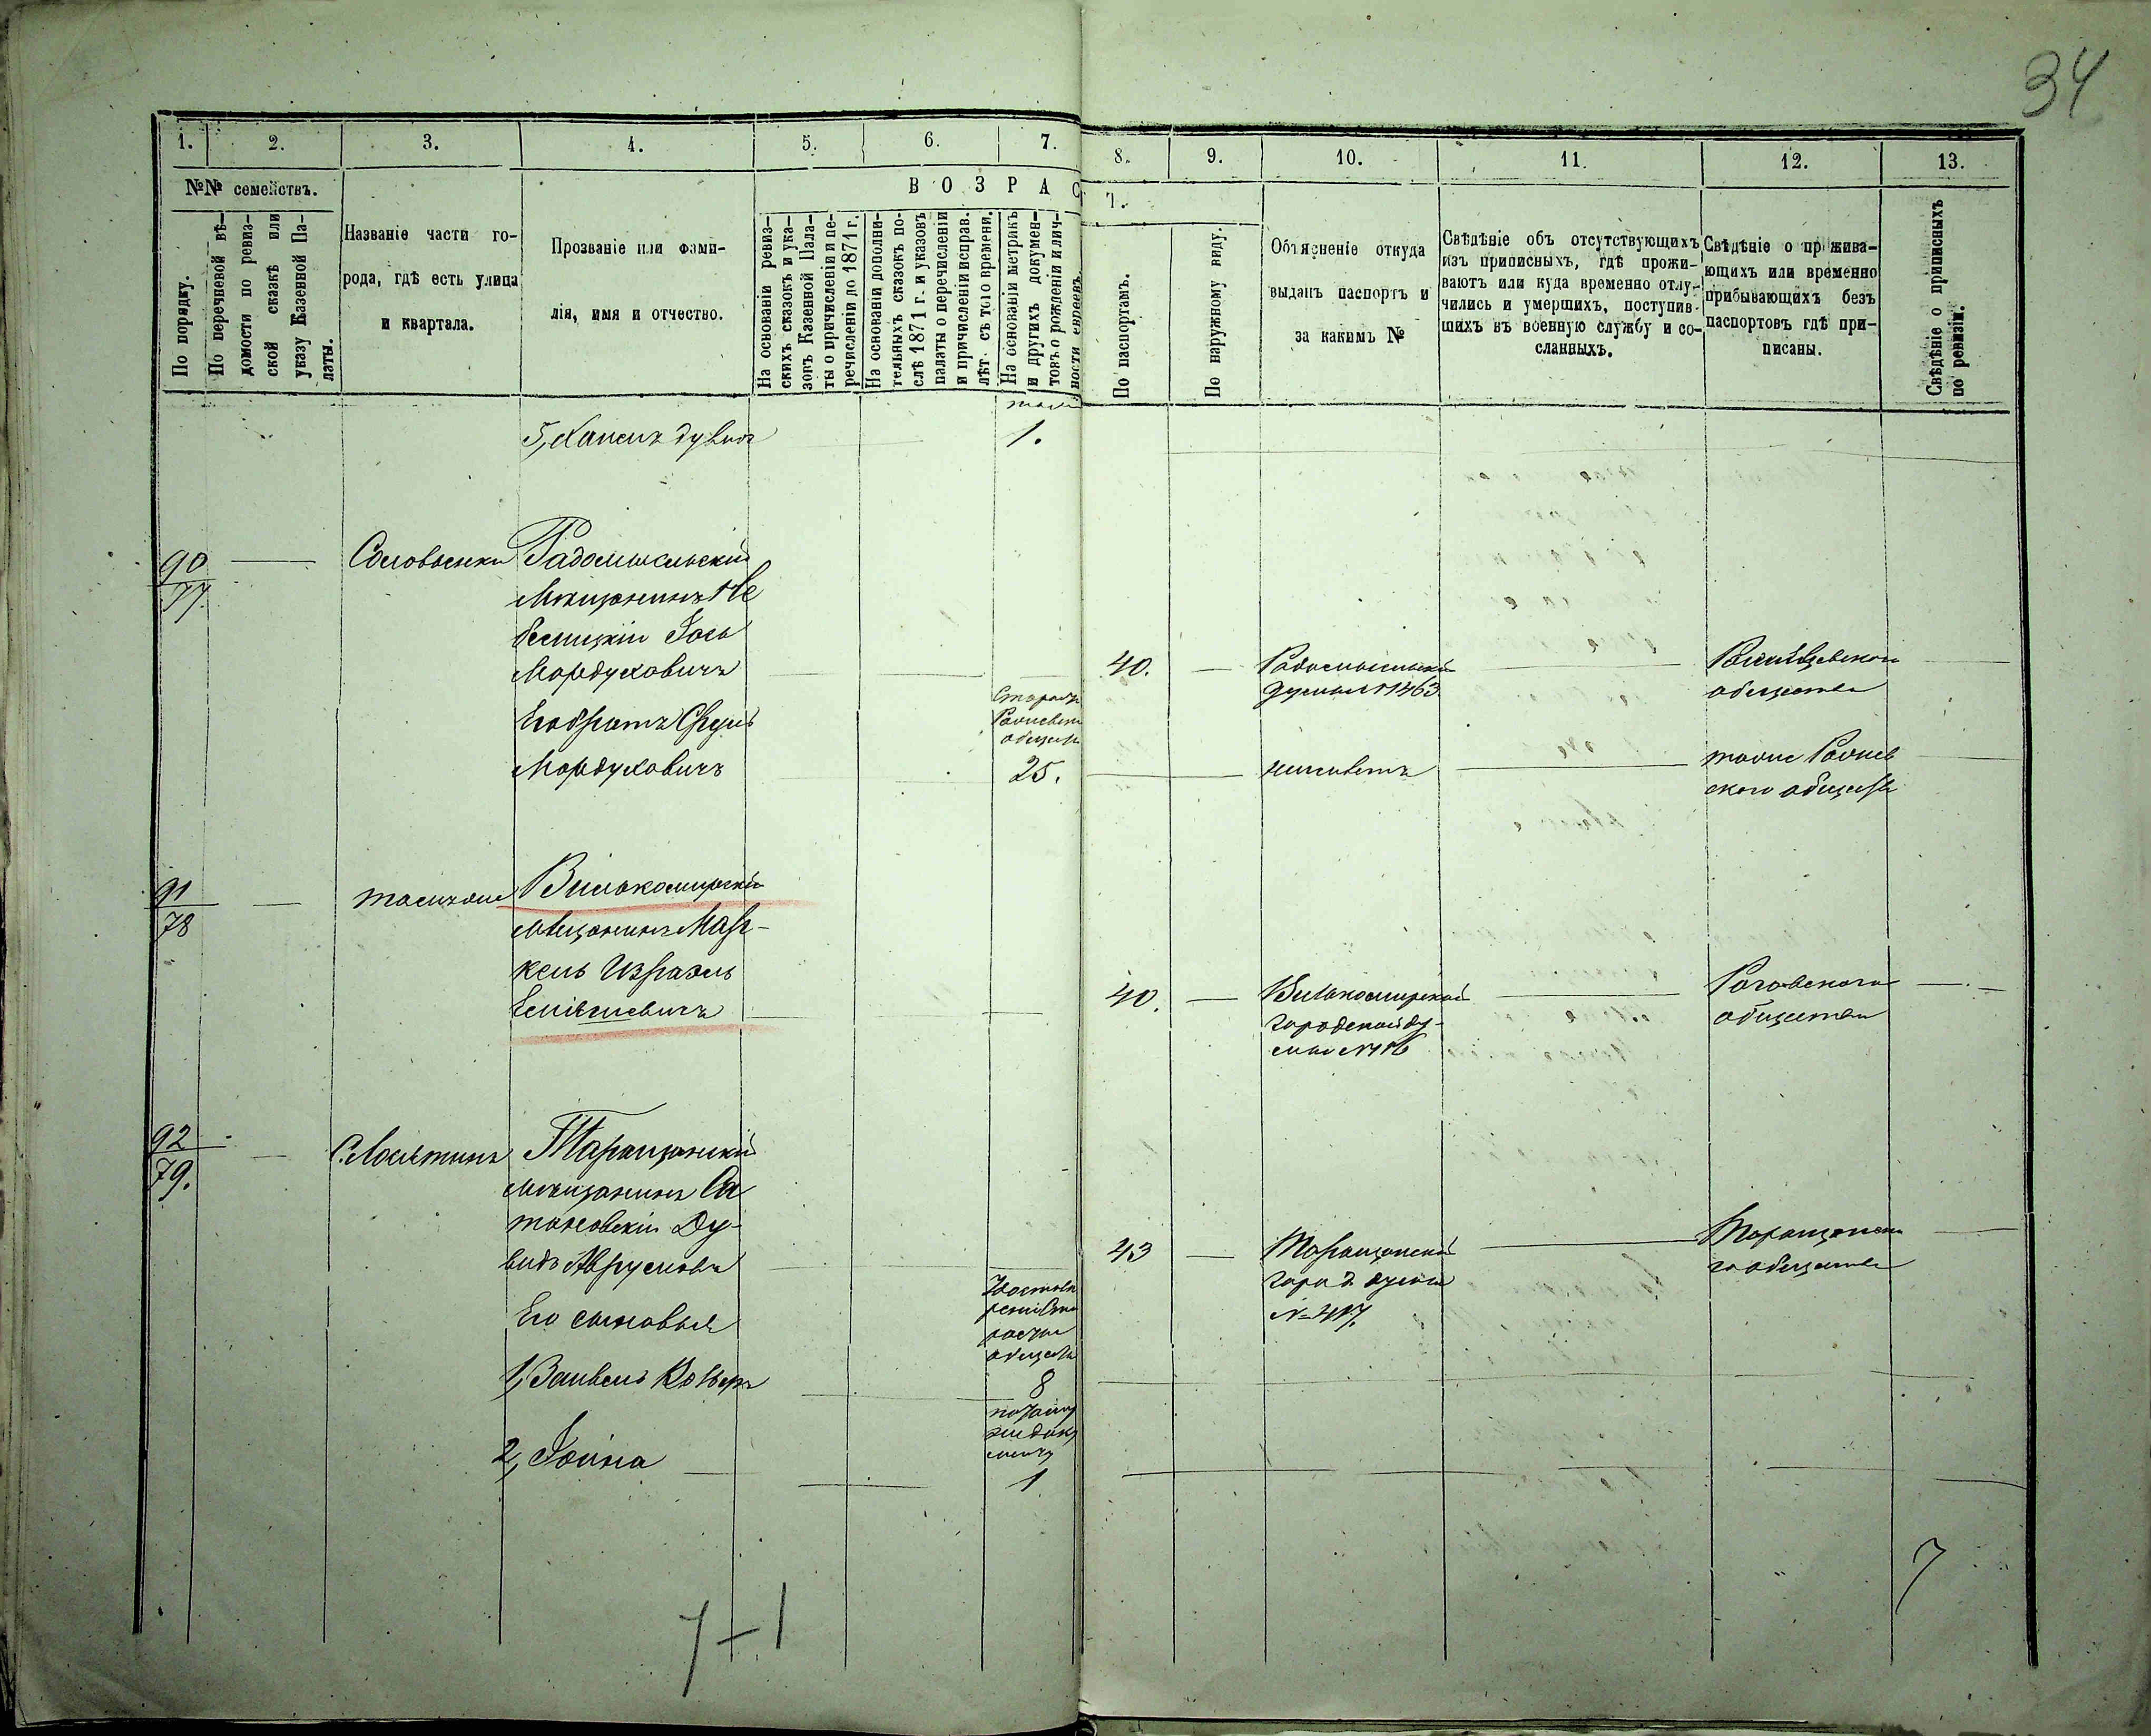 34
1. 2. 3. 4. 5. 6. 7. 8. 9. 10. 11. 12. 13.
№№ семействъ.
По порядку.
По перечневой вѣ-
домости по ревиз-
ской сказкѣ или
указу Казенной Па-
латы.
Названіе части го-
рода, гдѣ есть улица
и квартала.
Прозваніе или фами-
лія, имя и отчество.
ВОЗРАС
Т.
На основаніи ревиз-
скихъ сказокъ и ука-
зовъ Казенной Пала-
ты о причисленіи и пе-
речисленіи до 1871 г.
На основаніи дополни-
тельныхъ сказокъ по-
слѣ 1871 г. и указовъ
палаты о перечисленіи
и причисленіи исправ.
лѣт. съ того времени.
На основаніи метрикъ
и другихъ докумен-
товъ о рожденіи и лич-
ности евреевъ.
По паспортамъ.
По наружному виду.
Объясненіе откуда
выданъ паспортъ и
за какимъ №
Свѣдѣніе объ отсутствующихъ
изъ приписныхъ, гдѣ прожи-
ваютъ или куда временно отлу-
чились и умершихъ, поступив-
шихъ въ военную службу и со-
сланныхъ.
Свѣдѣніе о прожива-
ющихъ или временно
прибывающихъ безъ
паспортовъ гдѣ при-
писаны.
Свѣдѣніе о приписныхъ
по ревизіи.
5, Хаимъ Дувид
1.
90
77.
Соловьенки
Радомысльскій
Мѣщанинъ Не
бесицкій Іось
Мордуховичъ
40.
Радомысльской
Думы № 1463
общества
Его братъ Сруль
Мордуховичъ
25.
неимѣетъ
тоже
скаго общества
91
78
тамже
Вилькомирскій
мѣщанинъ Мар-
кель Израэль
40.
Вилькомирской
городской ду-
мы № 116
Роговскаго
общества
92
79.
Таращанскій
мѣщанинъ Са
тановскій Ду-
видъ Аврумовъ
43
Таращанской
город думы
№ 417.
Таращанска
го общества
Его сыновья
1, Занвель
8
2, Іойна
1
7-1
7